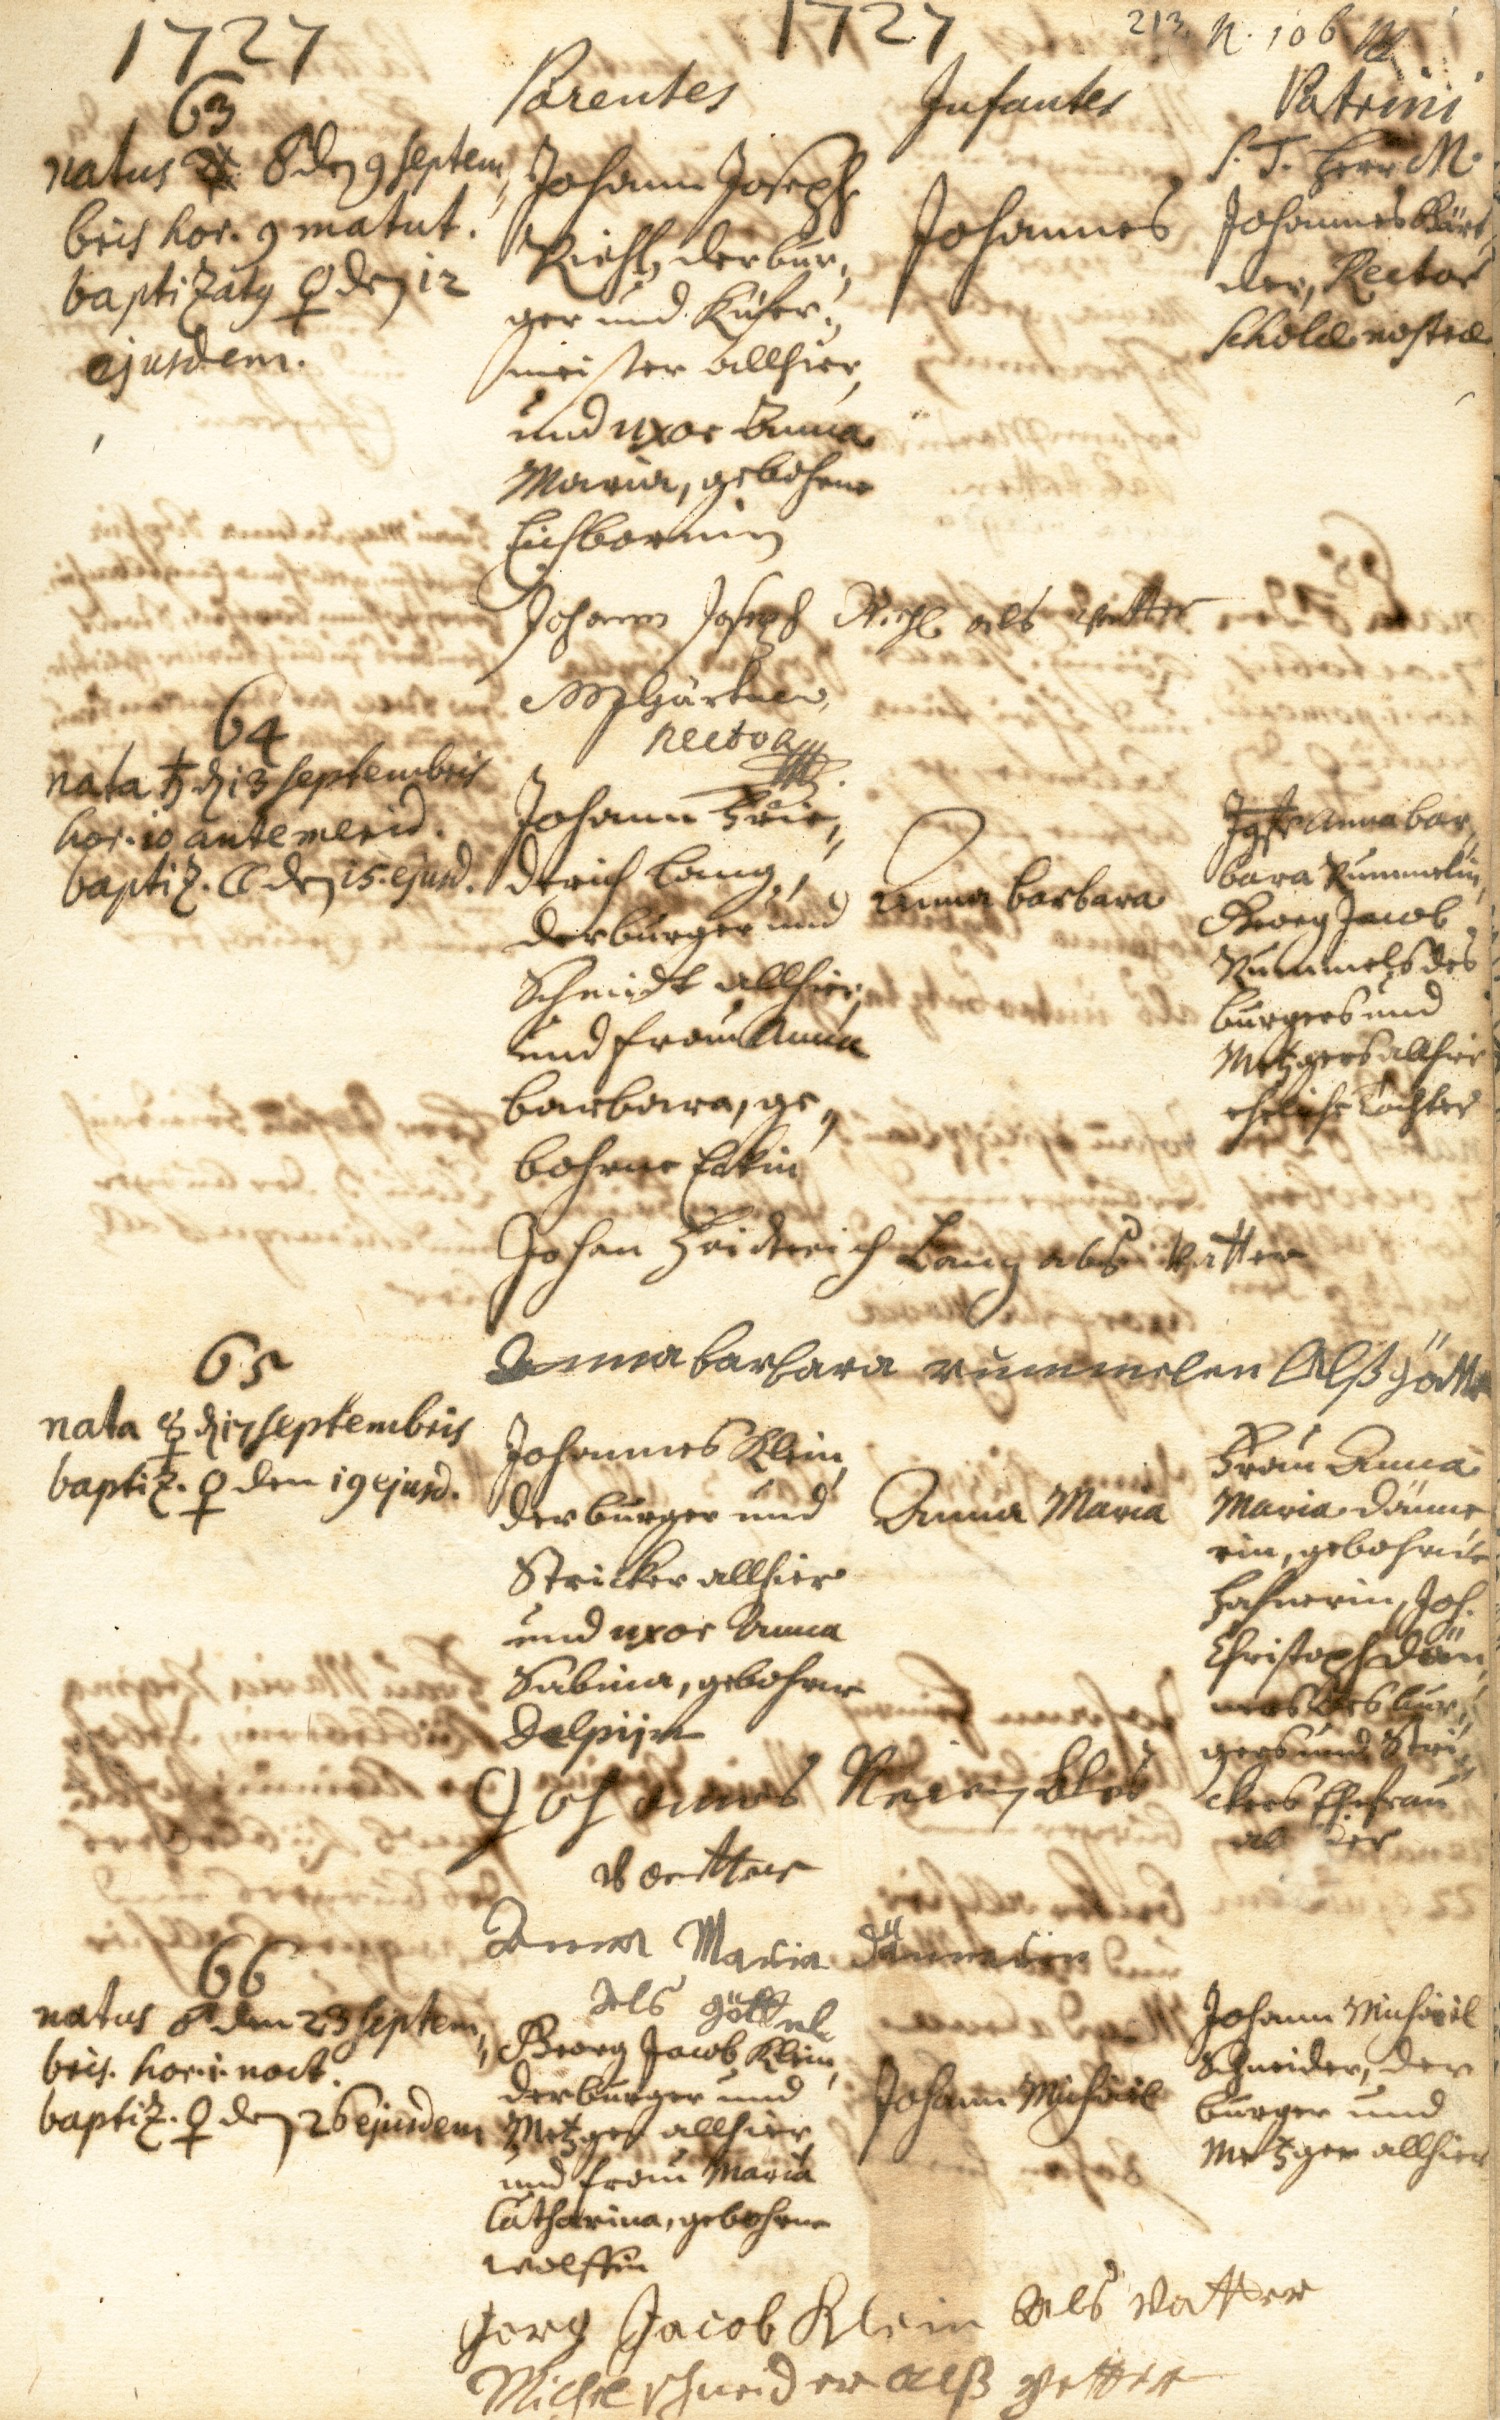 1727
1727
213. N. 106
Parentes
Infantes
Patrini
63
natus ♂ den 9 Septem„
bris hor. 9 matut.
baptizatq ♀ den 12
ejusdem.
Johann Joseph
Riehl, der bur„
ger und Kiefer„
meister allhier,
und uxor Anna
Maria, gebohrne
Eichbornin
Johannes
S. T. Herr M.
Johannes Gärt„
ner, Rector
Scholæ nostræ
Johann Joseph Riehl als vatter
M J Gärtner,
Rector
64
nata ♄ den 13 Septembris
hor. 10 ante merid.
baptiz. ☾ den 15. ejusd.
Johann Frie„
derich Lang,
der burger und
Schmidt allhier,
und frau Anna
barbara, ge„
bohrne Eckin
Anna barbara
Jgfr Anna bar„
bara Rummelin,
Georg Jacob
Rummels des
burgers und
Metzgers allhier
eheliche Tochter
Johan Fridterich Lang als vatter
Anna barbara rummelen Alß götte
65
nata ☿ den 17 Septembris
baptiz. ♀ den 19 ejusd.
Johannes Klein,
der burger und
Stricker allhier
und uxor Anna
Sabina, gebohrne
Anna Maria
Frau Anna
Maria Dänne
rin, gebohrne
Hafnerin, Joh.
Christoph Dän„
ners des bur„
gers und Stri„
ckers Ehefrau
allhier
Johannes Klein als
vatter
Anna Maria Dännerin
Als göttel
66
natus ♂ den 23 Septem„
bris. hor. 1. noct.
baptiz. ♀ den 26 ejusdem
Georg Jacob Klein,
der burger und
Metzger allhier
und frau Maria
Catharina, gebohrne
wolffin
Johann Michael
Johann Michael
Schneider, der
burger und
Metzger allhier
Gerg Jacob Klein Als vatter
Michel schneider alß Petter